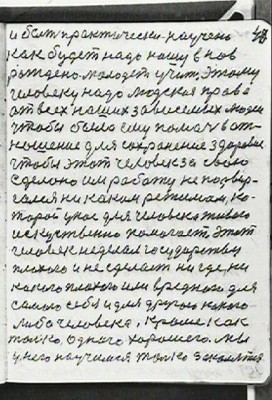 и быть практически научено
как будет надо нашу в нов
рождено молодеж учить, этому
человеку надо людская права
от всех наших зависемых людей
чтобы было ему помоч в от-
ношение для сохранение здоровие
чтобы этот человек за свою
сделоно им работу не подвер-
гался ни каким режимам, ко-
торой у нас для человека живого
искуственно помогает этот
человек неделал государству
плохого и не сделает ни где, ни
какого плохого или вредного для
самого себя и для другого какого
либо человека, кроме как
только одного хорошего. мы
у него научимся только закалятся